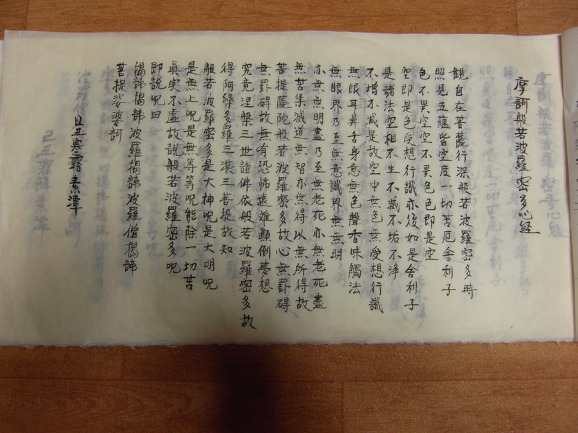 摩訶般若波羅密多心經
觀自在菩薩行深般若波羅密多時
照見五蘊皆空度一切苦厄舍利子
色不異空空不異色色即是空
空即是色受想行識亦復如是舍利子
是諸法空相不生不滅不垢不淨
不增不減是故空中無色無受想行識
無眼耳鼻舌身意無色聲香味觸法
無眼界乃至無意識界無無明
亦無無明盡乃至無老死亦無老死盡
無苦集滅道無智亦無得以無所得故
菩提薩陀般若波羅密多故心無罣碍
無罣碍故無有恐怖遠離顛倒夢想
究竟涅槃三世諸佛依般若波羅密多故
得阿耨多羅三漠三菩提故知
般若波羅密多是大神呪是大明呪
是無上呪是無等等呪能除一切苦
真实不虛故說般若波羅密多呪
即說呪曰
揭諦揭諦波羅揭諦波羅僧揭諦
菩提娑婆訶